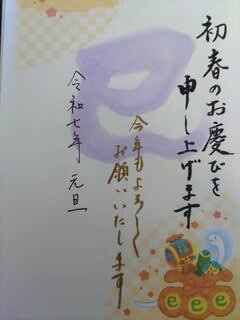 初春のお慶びを
申し上げます
今年もよろしく
お願いいたします
令和七年 元旦
巳